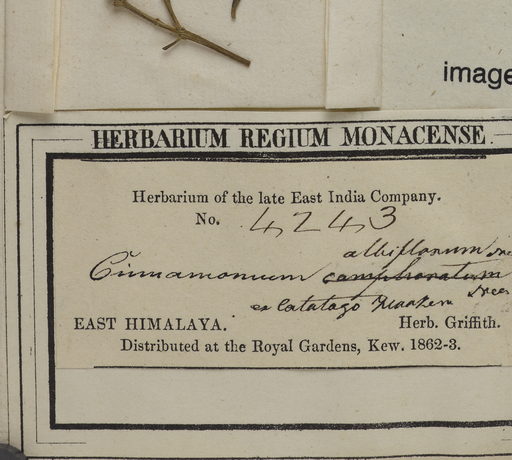 image
HERBARIUM REGIUM MONACENSE.
Herbarium of the late East India Company.
No. 4243
albiflorum Nees
Cinnamomum camphoratum
Nees
ex Catalogo
EAST HIMALAYA. Herb. Griffith.
Distributed at the Royal Gardens, Kew. 1862-3.